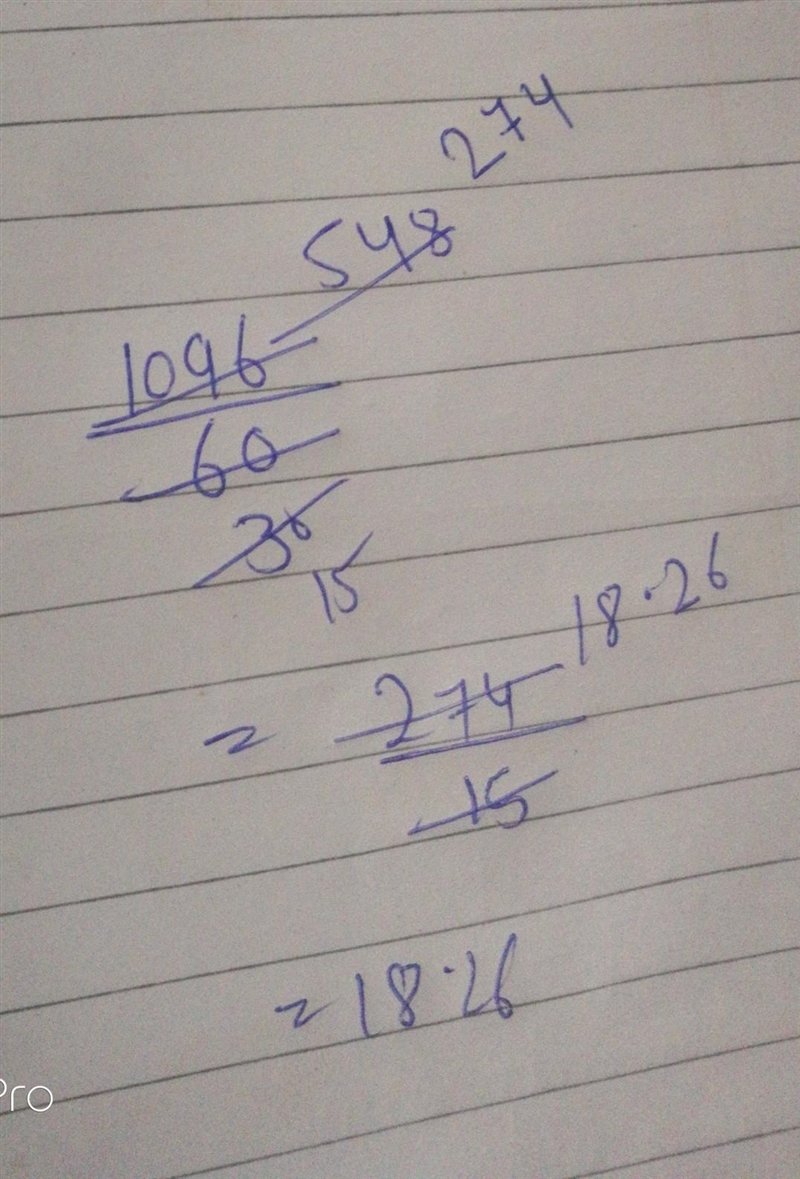 274
548
1096
60
30
15
18.26
= 274
15
= 18.26
Pro